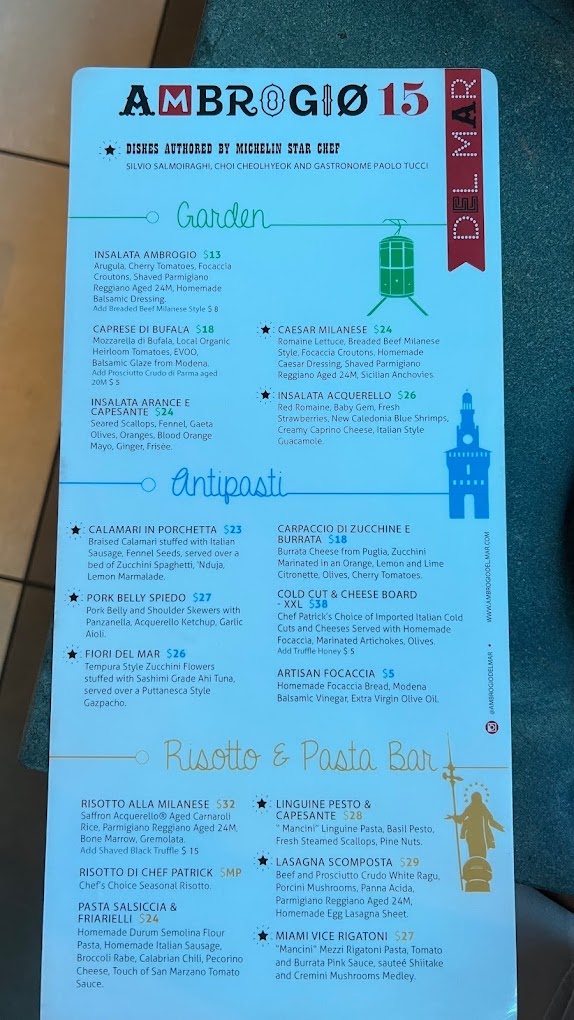 AMBROGIO 15
DEL MAR
DISHES AUTHORED BY MICHELIN STAR CHEF
SILVIO SALMOIRAGHI, CHOI CHEOLHYEOK AND GASTRONOME PAOLO TUCCI
Garden
INSALATA AMBROGIO $13
Arugula, Cherry Tomatoes, Focaccia
Croutons, Shaved Parmigiano
Reggiano Aged 24M, Homemade
Balsamic Dressing.
Add Breaded Beef Milanese Style $ 8
CAPRESE DI BUFALA $18
Mozzarella di Bufala, Local Organic
Heirloom Tomatoes, EVOO,
Balsamic Glaze from Modena.
Add Prosciutto Crudo di Parma aged
20M $ 5
INSALATA ARANCE E
CAPESANTE $24
Seared Scallops, Fennel, Gaeta
Olives, Oranges, Blood Orange
Mayo, Ginger, Frisée.
CAESAR MILANESE $24
Romaine Lettuce, Breaded Beef Milanese
Style, Focaccia Croutons, Homemade
Caesar Dressing, Shaved Parmigiano
Reggiano Aged 24M, Sicilian Anchovies.
INSALATA ACQUERELLO $26
Red Romaine, Baby Gem, Fresh
Strawberries, New Caledonia Blue Shrimps,
Creamy Caprino Cheese, Italian Style
Guacamole.
Antipasti
CALAMARI IN PORCHETTA $23
Braised Calamari stuffed with Italian
Sausage, Fennel Seeds, served over a
bed of Zucchini Spaghetti, 'Nduja,
Lemon Marmalade.
PORK BELLY SPIEDO $27
Pork Belly and Shoulder Skewers with
Panzanella, Acquerello Ketchup, Garlic
Aioli.
FIORI DEL MAR $26
Tempura Style Zucchini Flowers
stuffed with Sashimi Grade Ahi Tuna,
served over a Puttanesca Style
Gazpacho.
CARPACCIO DI ZUCCHINE E
BURRATA $18
Burrata Cheese from Puglia, Zucchini
Marinated in an Orange, Lemon and Lime
Citronette, Olives, Cherry Tomatoes.
COLD CUT & CHEESE BOARD
- XXL $38
Chef Patrick's Choice of Imported Italian Cold
Cuts and Cheeses Served with Homemade
Focaccia, Marinated Artichokes, Olives.
Add Truffle Honey $ 5
ARTISAN FOCACCIA $5
Homemade Focaccia Bread, Modena
Balsamic Vinegar, Extra Virgin Olive Oil.
@AMBROGIODELMAR • WWW.AMBROGIODELMAR.COM
Risotto & Pasta Bar
RISOTTO ALLA MILANESE $32
Saffron Acquerello® Aged Carnaroli
Rice, Parmigiano Reggiano Aged 24M,
Bone Marrow, Gremolata.
Add Shaved Black Truffle $ 15
RISOTTO DI CHEF PATRICK $MP
Chef's Choice Seasonal Risotto.
PASTA SALSICCIA &
FRIARIELLI $24
Homemade Durum Semolina Flour
Pasta, Homemade Italian Sausage,
Broccoli Rabe, Calabrian Chili, Pecorino
Cheese, Touch of San Marzano Tomato
Sauce.
LINGUINE PESTO &
CAPESANTE $28
" Mancini" Linguine Pasta, Basil Pesto,
Fresh Steamed Scallops, Pine Nuts.
LASAGNA SCOMPOSTA $29
Beef and Prosciutto Crudo White Ragu,
Porcini Mushrooms, Panna Acida,
Parmigiano Reggiano Aged 24M,
Homemade Egg Lasagna Sheet.
MIAMI VICE RIGATONI $27
"Mancini" Mezzi Rigatoni Pasta, Tomato
and Burrata Pink Sauce, sauteé Shiitake
and Cremini Mushrooms Medley.